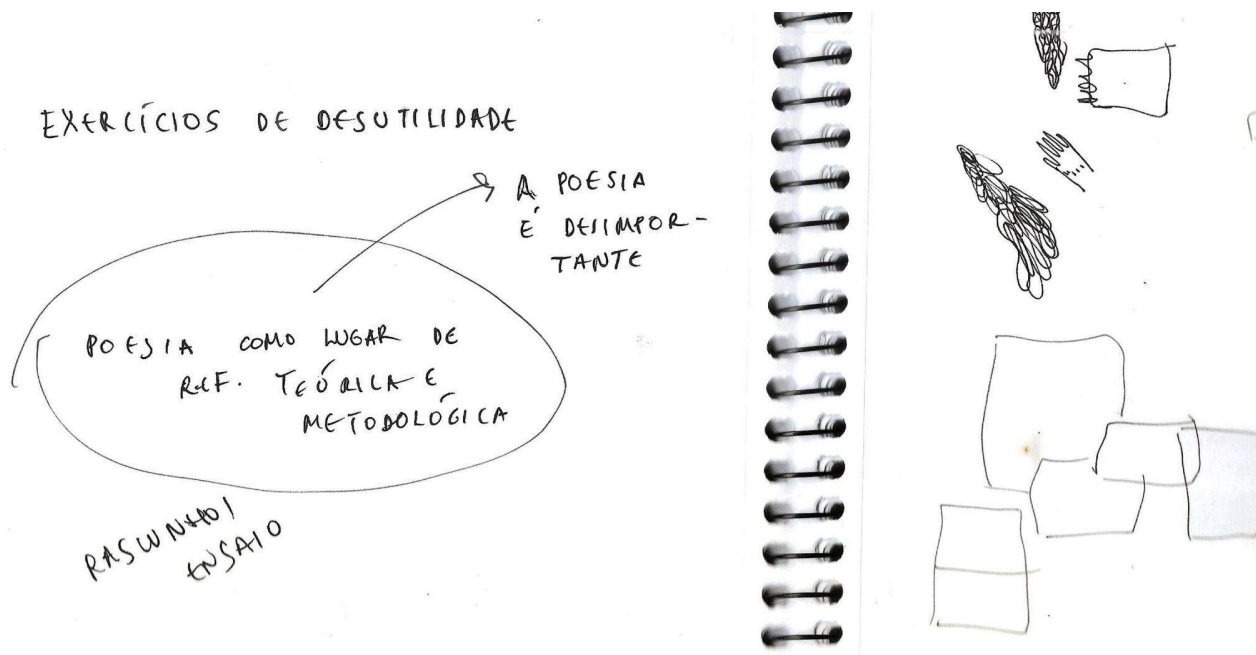 EXERCÍCIOS DE DESUTILIDADE
A POESIA
É DESIMPOR-
TANTE
POESIA COMO LUGAR DE
REF. TEÓRICA E
METODOLÓGICA
RASCUNHO/
ENSAIO